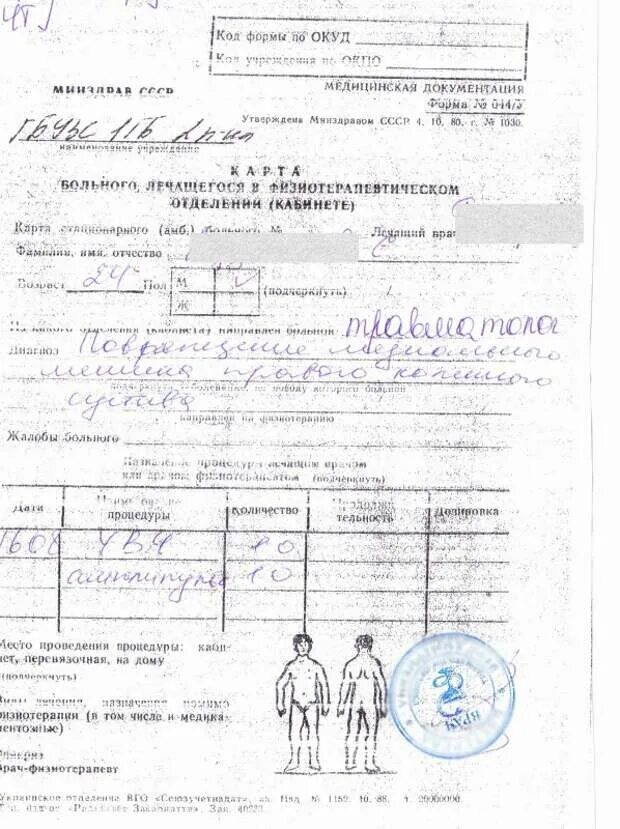 Код формы по ОКУД
Код учреждения по ОКПО
МИНЗДРАВ СССР
МЕДИЦИНСКАЯ ДОКУМЕНТАЦИЯ
Форма № 044/У
Утверждена Минздравом СССР 4. 10. 80. г. № 1030.
наименование учреждения
КАРТА
БОЛЬНОГО, ЛЕЧАЩЕГОСЯ В ФИЗИОТЕРАПЕВТИЧЕСКОМ
ОТДЕЛЕНИИ (КАБИНЕТЕ)
Карта стационарного (амб.) больного № Лечащий врач
Фамилия, имя, отчество
Возраст 24 Пол М
Ж (подчеркнуть)
Из какого отделения (кабинета) направлен больной травматолог
Диагноз Повреждение медиального
мениска правого коленного
сустава
направлен на физиотерапию
Жалобы больного
Назначение процедуры лечащим врачом
или врачом физиотерапевтом (подчеркнуть)
Дата Наименование процедуры Количество Продолжительность Дозировка
УВЧ 10
амплипульс 10
Место проведения процедуры: каби-
нет, перевязочная, на дому
(подчеркнуть)
Виды лечения, назначенные помимо
физиотерапии (в том числе и медика-
ментозные)
Врач-физиотерапевт
ВРАЧ